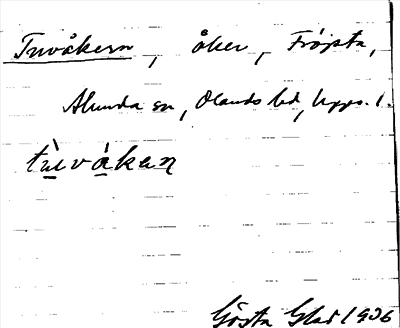 Tuvåkern, åker, Fröjsta,
Alunda sn, Olands hd, Upps. l.
tùvåkan
Gösta Glad 1936